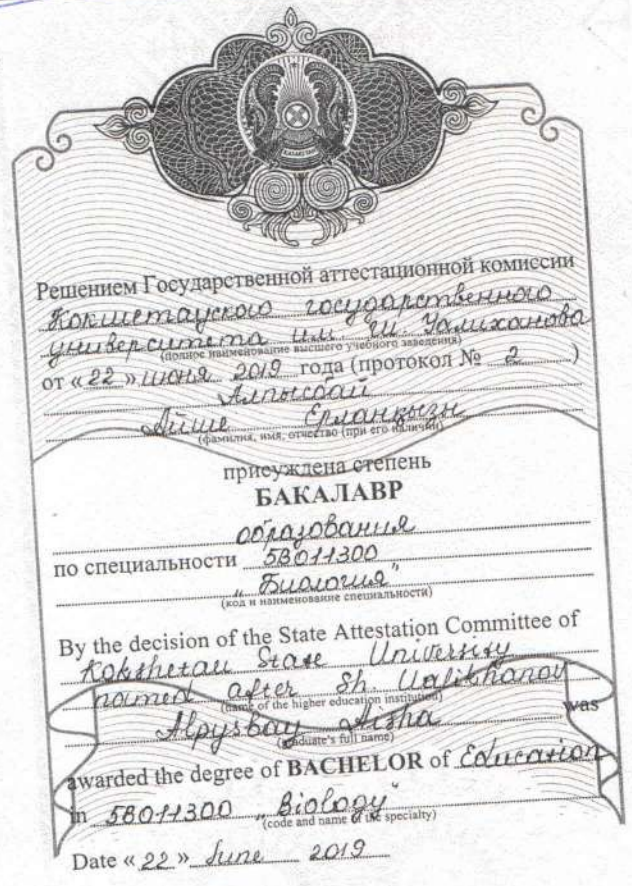 ҚАЗАҚСТАН
Решением Государственной аттестационной комиссии
Кокшетауского государственного
университета им. Ш. Уалиханова
(полное наименование высшего учебного заведения)
от «22» июня 2019 года (протокол № 2)
Алпысбай
Айше Ерланқызы
(фамилия, имя, отчество (при его наличии)
присуждена степень
БАКАЛАВР
образования
по специальности 5В011300
„Биология”
(код и наименование специальности)
By the decision of the State Attestation Committee of
Kokshetau State University
named after Sh. Ualikhanov
(name of the higher education institution)
Alpysbay Aisha was
(graduate's full name)
awarded the degree of BACHELOR of Education
in 5B011300 „Biology”
(code and name of the specialty)
Date «22» June 2019